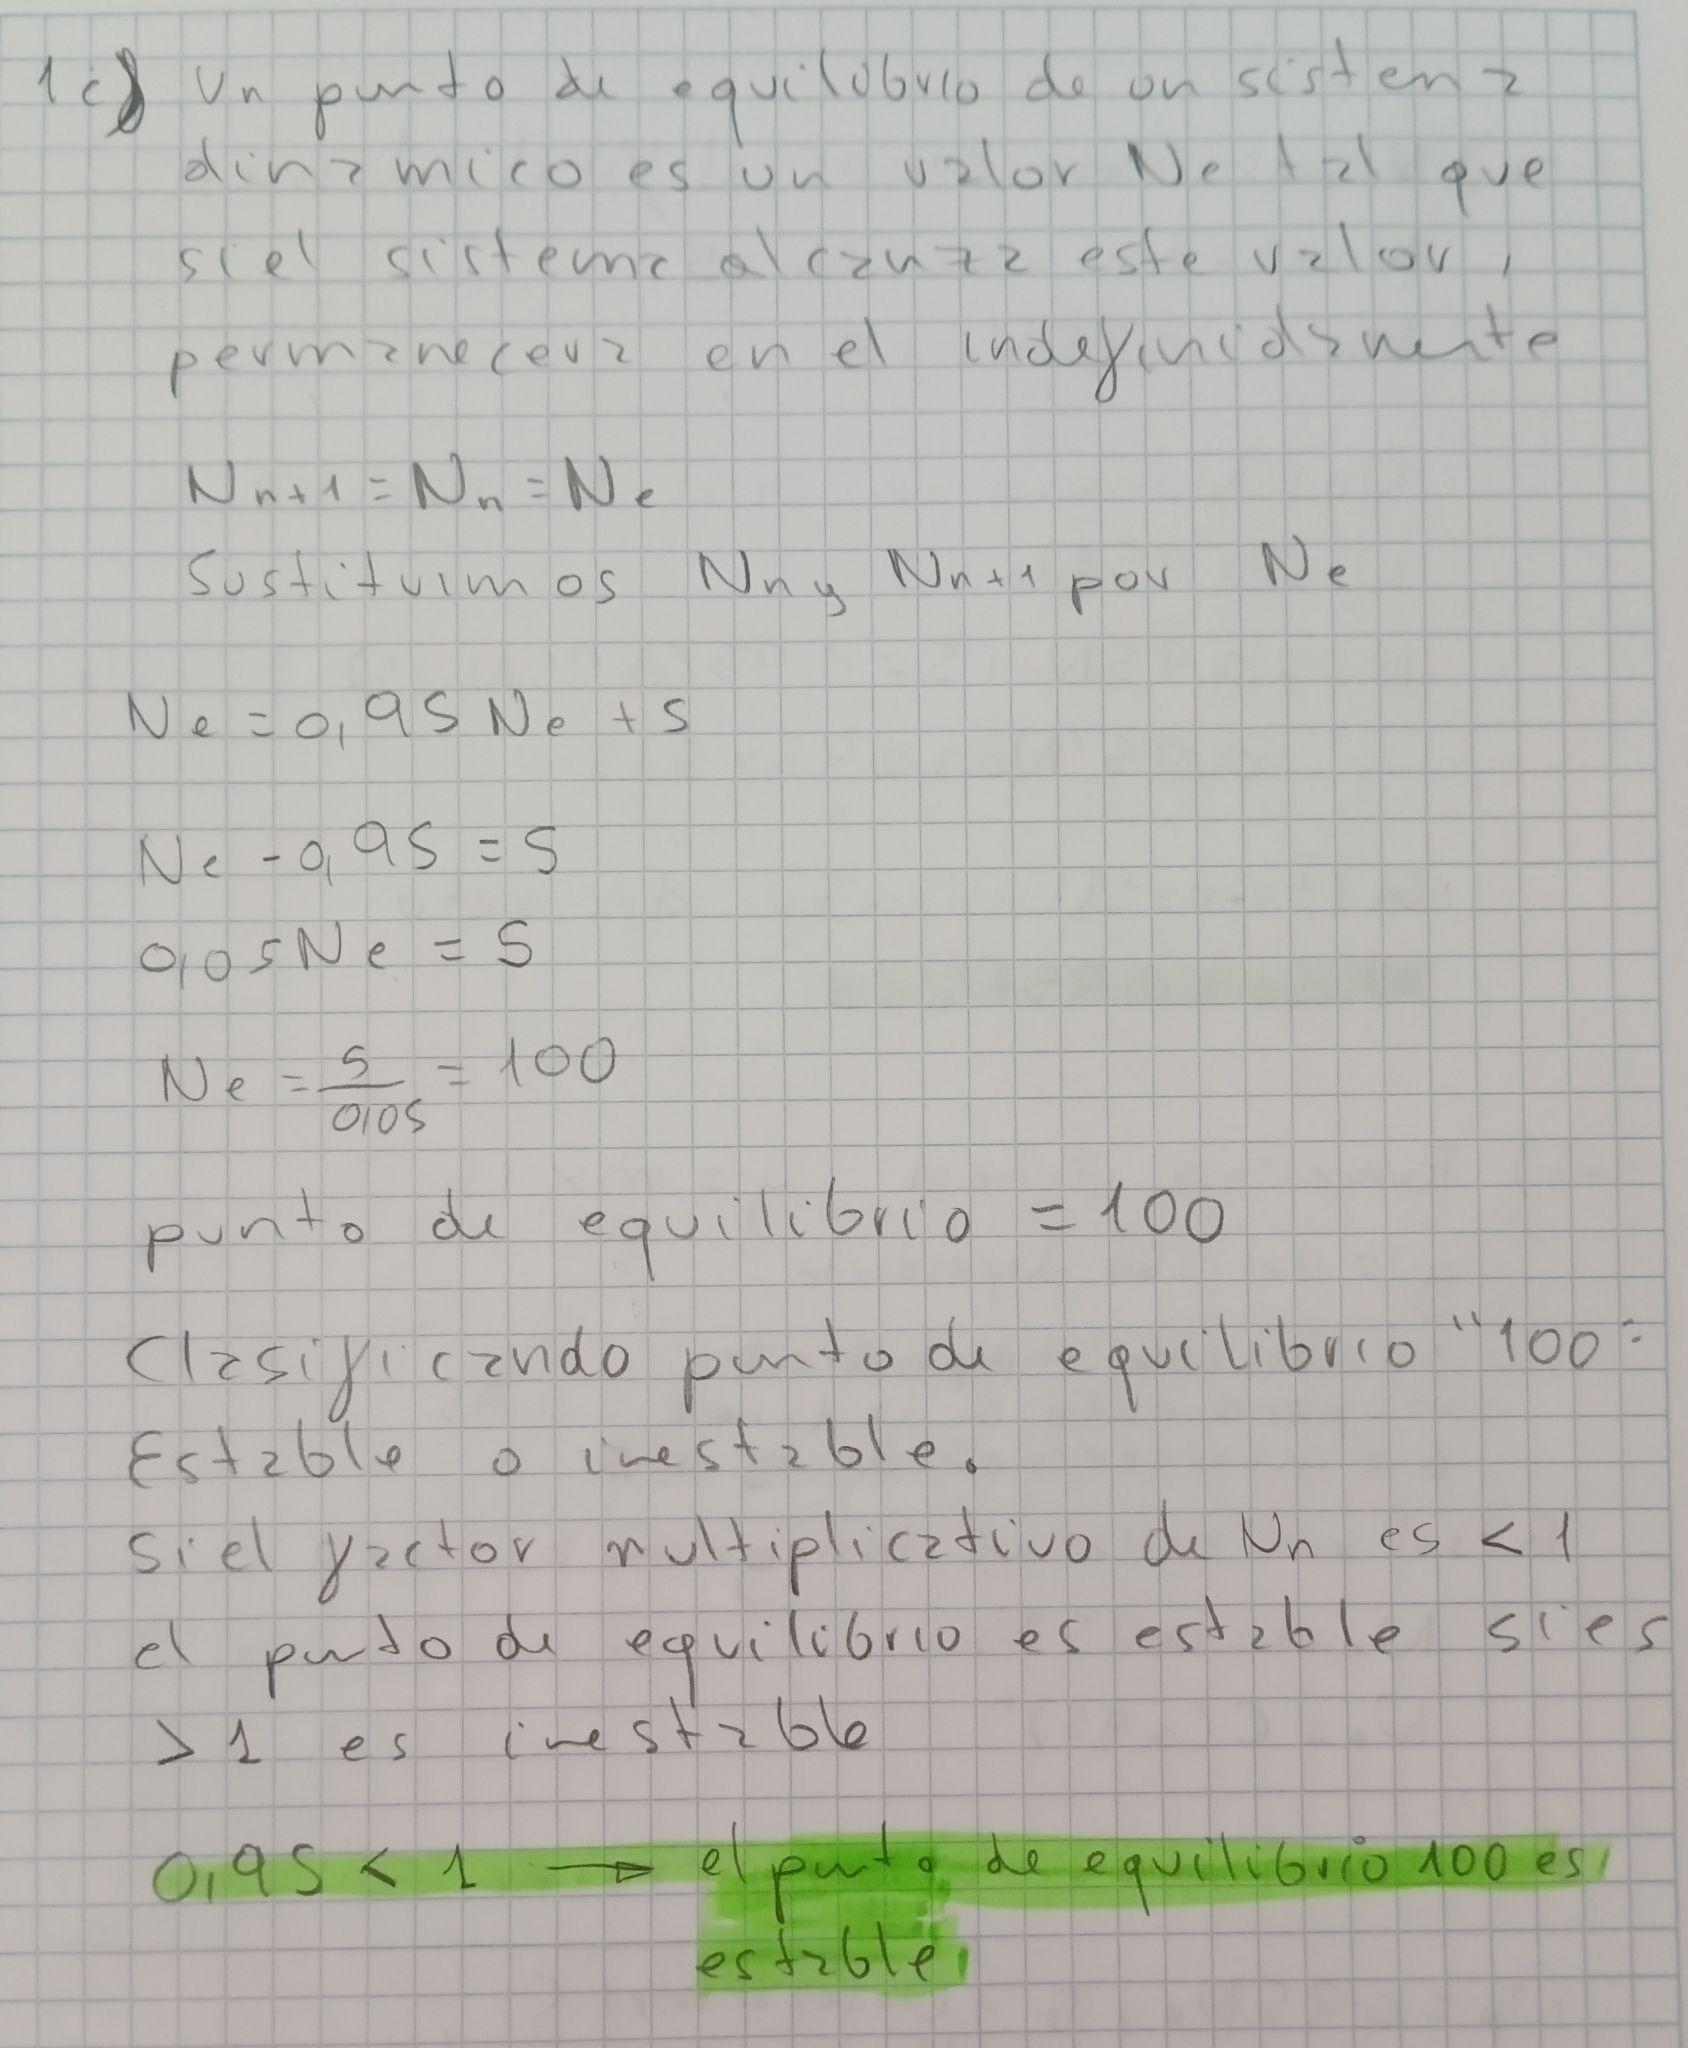 1c) Un punto de equilibrio de un sistema
dinamico es un valor Ne tal que
si el sistema alcanza este valor,
permanecera en el indefinidamente
Nn+1 = Nn = Ne
Sustituimos Nn y Nn+1 por Ne
Ne = 0,95 Ne + 5
Ne - 0,95 = 5
0,05 Ne = 5
Ne = 5/0,05 = 100
punto de equilibrio = 100
Clasificando punto de equilibrio "100":
Estable o inestable.
Si el factor multiplicativo de Nn es < 1
el punto de equilibrio es estable si es
> 1 es inestable
0,95 < 1 → el punto de equilibrio 100 es
estable